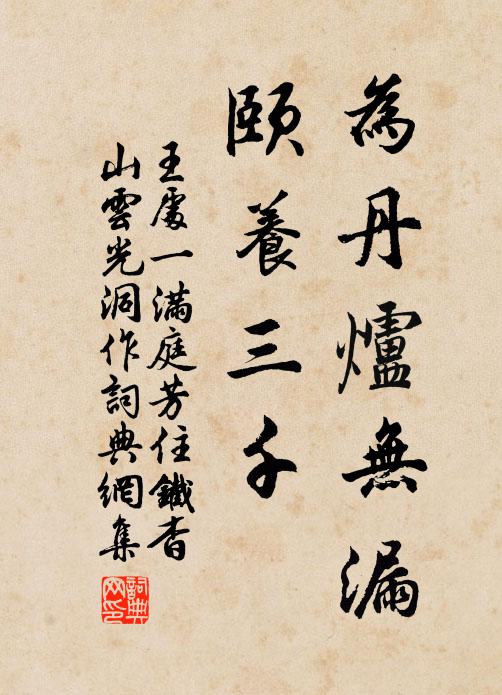 為丹爐無漏
頤養三千
王處一滿庭芳住鐵查
山雲光洞作詞典網集
詞典
网印